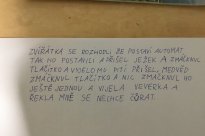 ZVÍŘÁTKA SE ROZHODLI ŽE POSTAVÍ AUTOMAT
TAK HO POSTAVILI A PŘIŠEL JEŽEK A ZMÁČKNUL
TLAČÍTKO A VYJELO MU PITÍ PŘIŠEL, MEDVĚD
ZMÁČKNUL TLAČÍTKO A NIC ZMÁČKNUL HO
JEŠTĚ JEDNOU A VYJELA VEVERKA A
ŘEKLA MNĚ SE NECHCE